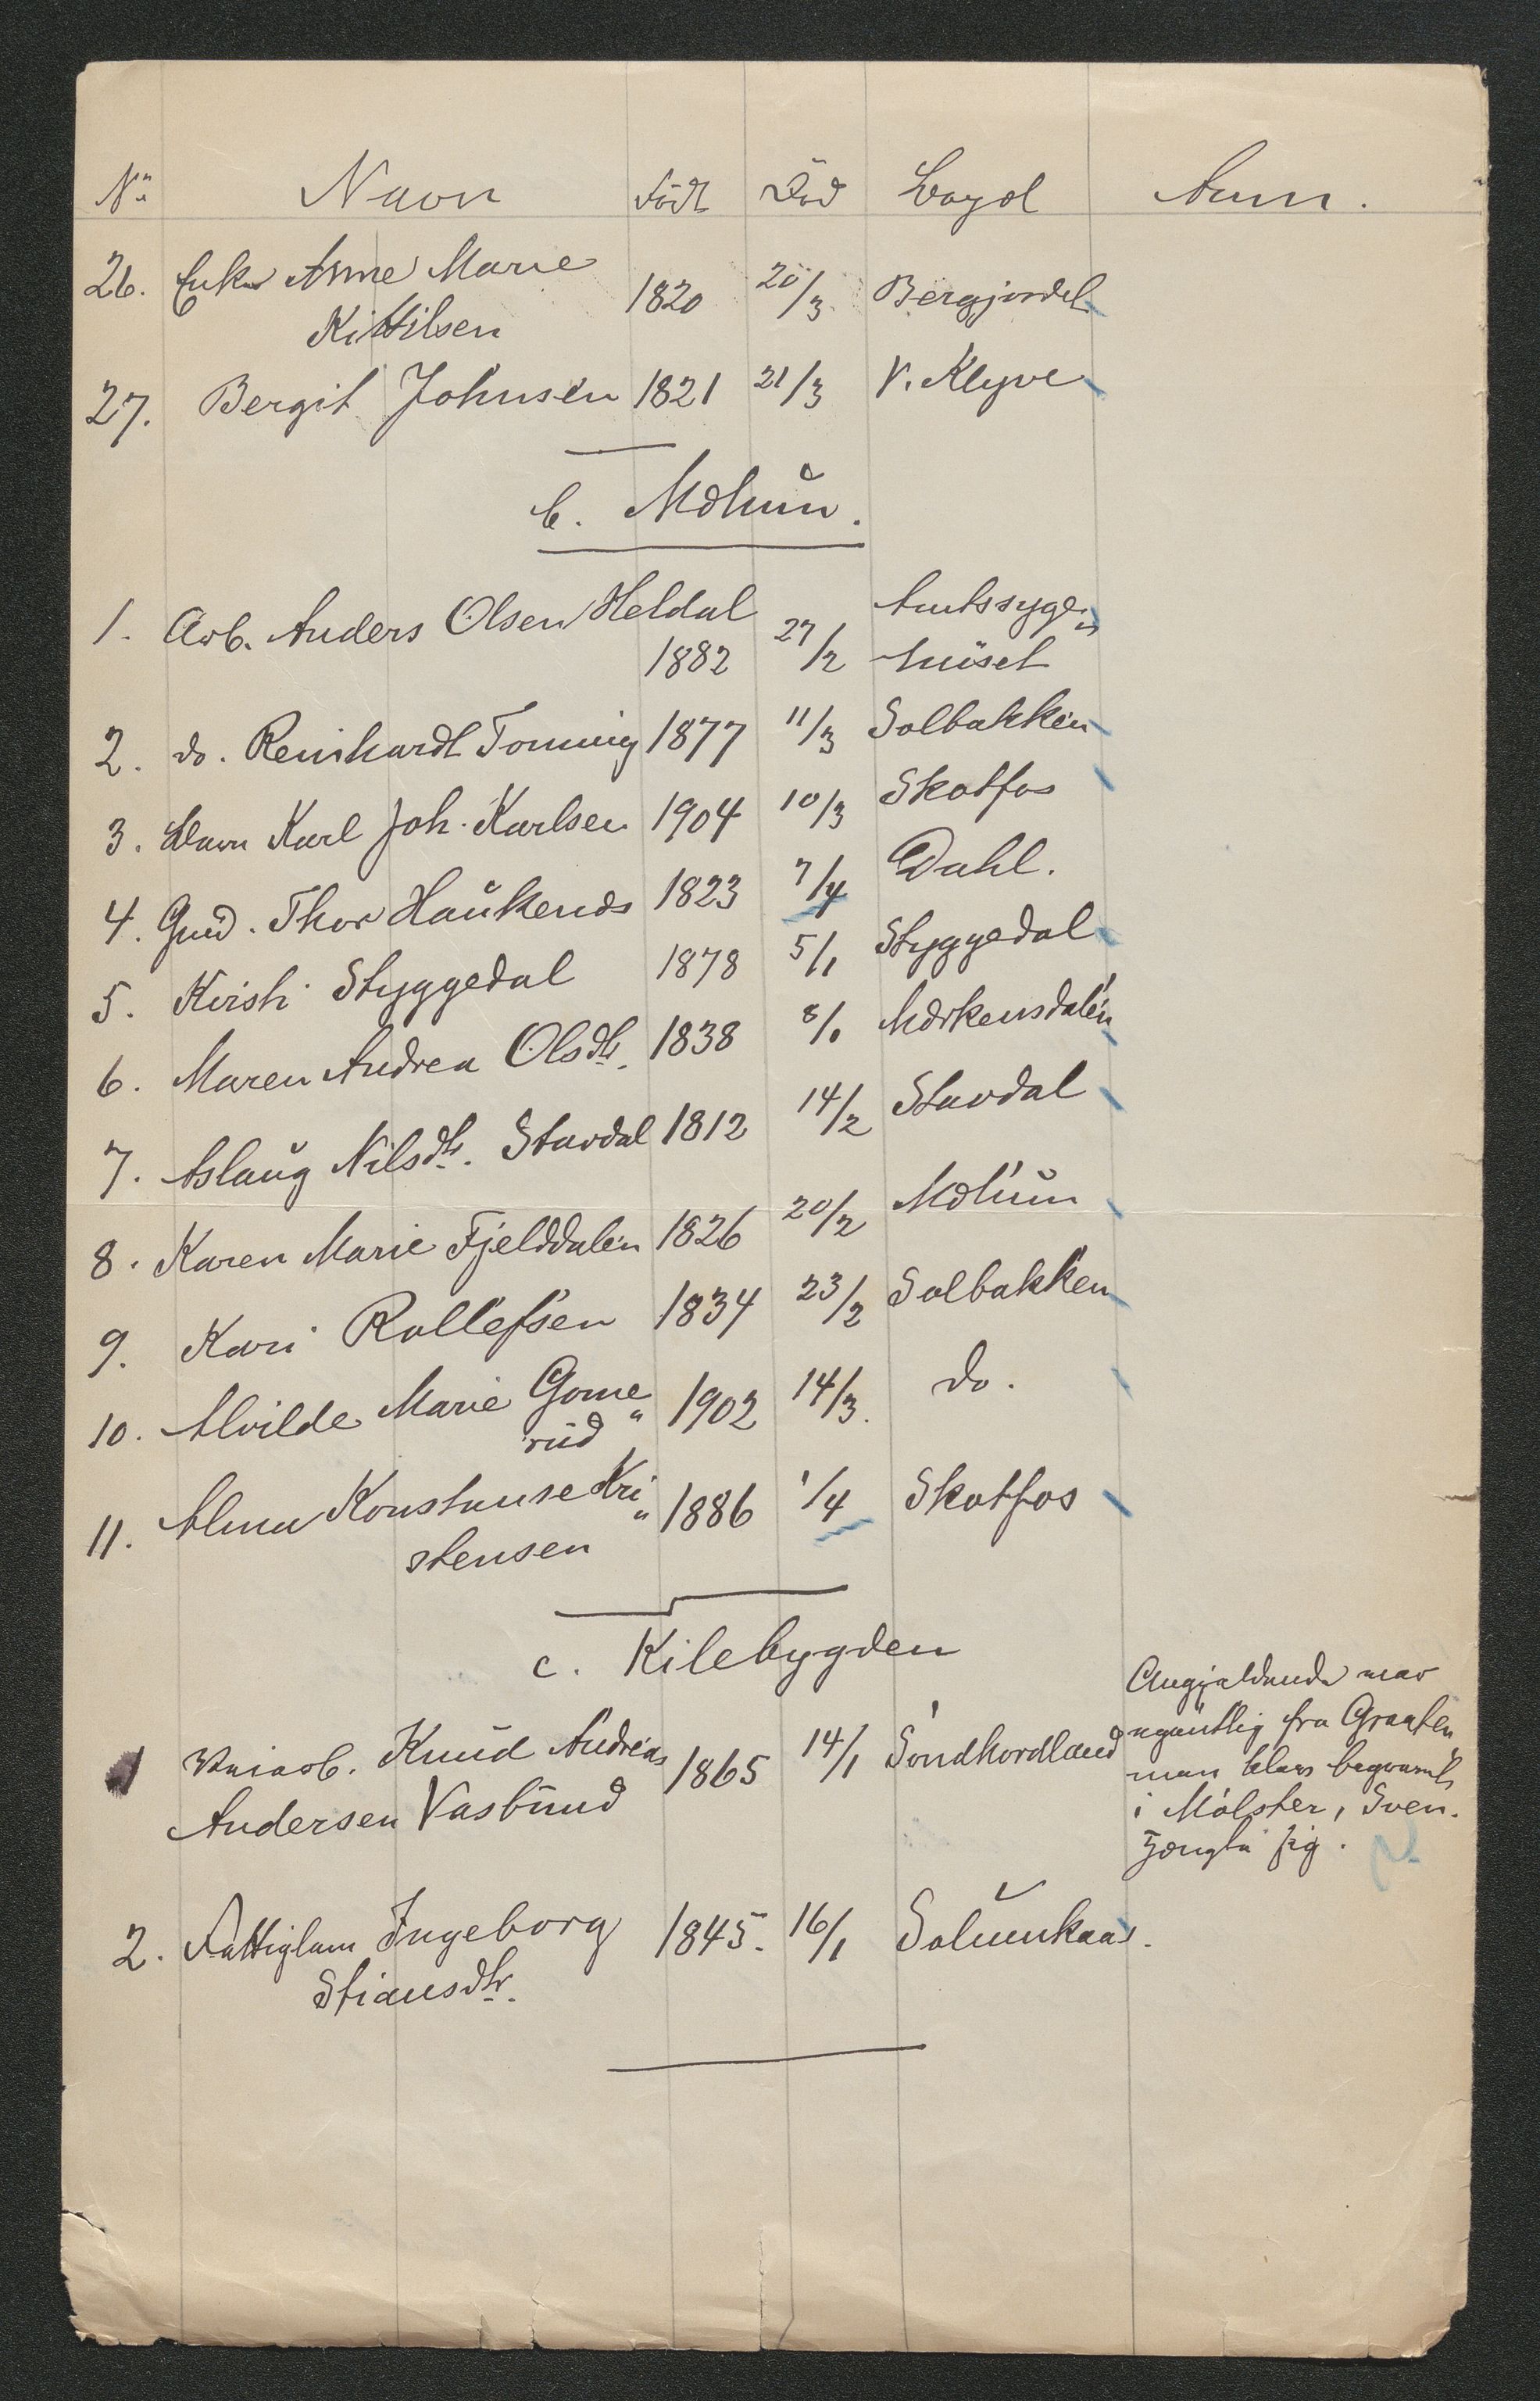 No. Navn Født Død Bopæl Anm.
26. Enke Anne Marie
Kittilsen 1820 20/3 Bergjordet
27. Bergit Johnsen 1821 21/3 V. Klyve
b. Mælum.
1. Arb. Anders Olsen Heldal Amtssyge„
1882 27/2 huset
2. do. Reinhardt Tonning 1877 11/3 Solbakken
3. Barn Karl Joh. Karlsen 1904 10/3 Skotfos
4. Gmd. Thor Haukenæs 1823 7/4 Dahl.
5. Kirsti Styggedal 1878 5/1 Styggedal
6. Maren Andrea Olsdtr. 1838 8/1 Mærkensdalen
7. Aslaug Nilsdtr. Stavdal 1812 14/2 Stavdal
8. Karen Marie Fjelddalen 1826 20/2 Mælum
9. Kari Rollefsen 1834 23/2 Solbakken
10. Alvilde Marie Gome„
rud 1902 14/3. do.
11. Alma Konstanse Kri„
stensen 1886 1/4 Skotfos
c. Kilebygden
1 Knud Andreas
Andersen Vasbund 1865 14/1 Søndhordland
fra Graaten
men blev
i Mólster, Sven.
sig.
2. Fattiglem Ingeborg 1845. 16/1 Solumkaas.
Stiansdtr.